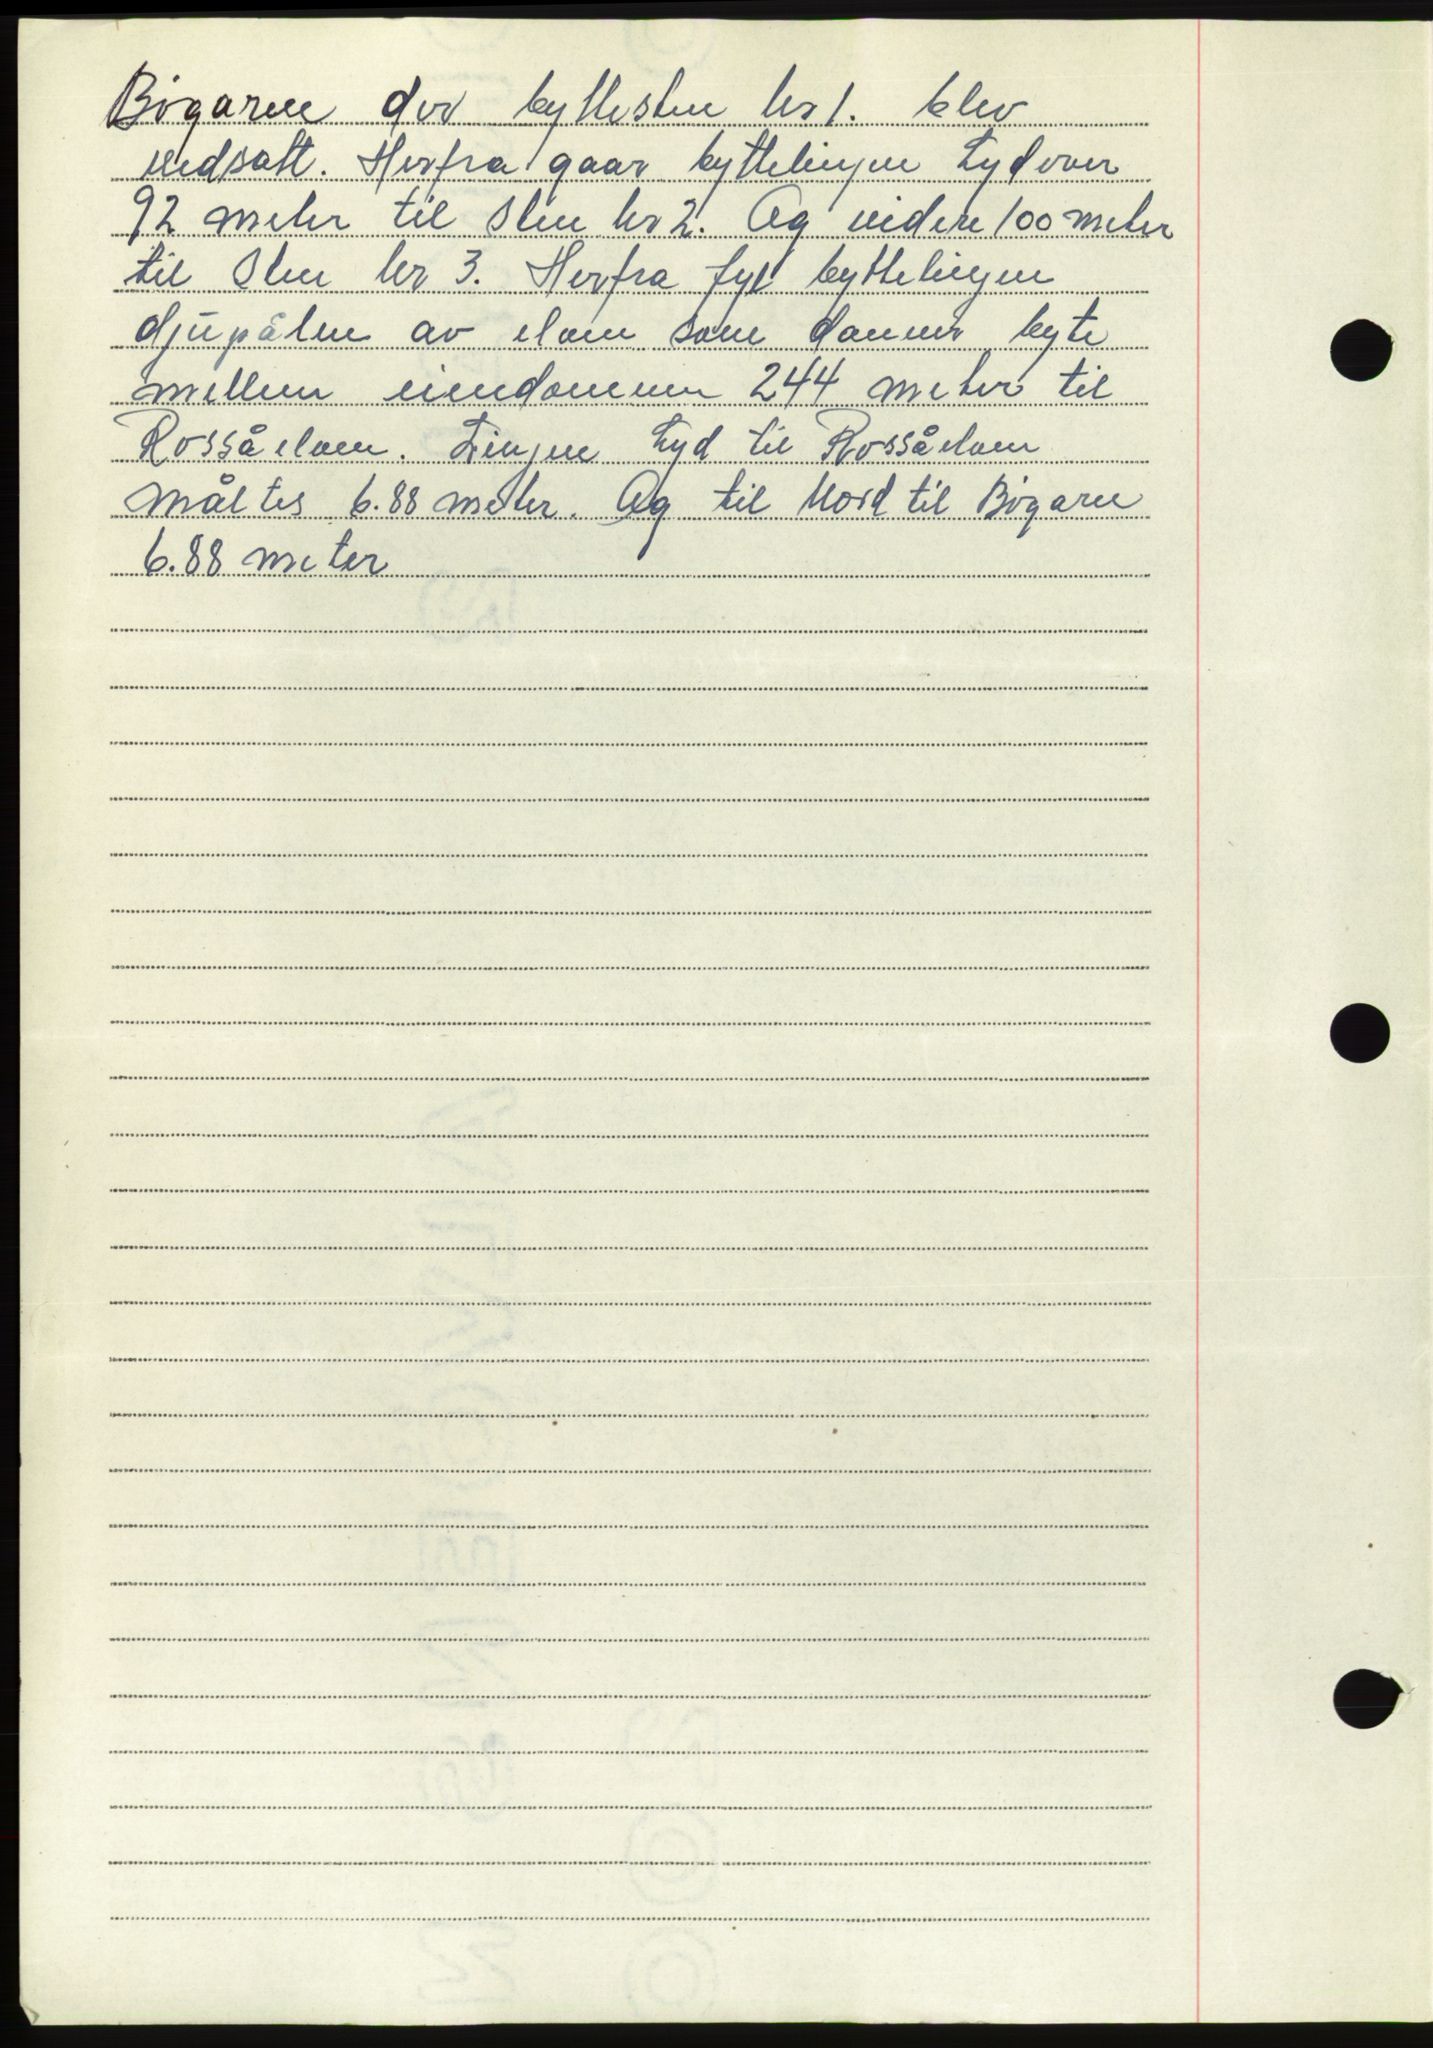 Bøgaren der byttesten Nr 1. blev
nedsatt. Herfra gaar byttelinjen Sydover
92 meter til Sten Nr 2. Og videre 100 meter
til Sten Nr 3. Herfra fyl byttelinjen
djupålen av elven som danner byte
mellem eiendommen 244 meter til
Rossåelven. Linjen Syd til Rossåelven
måltes 6.88 meter. Og til Nord til Bøgaren
6.88 meter